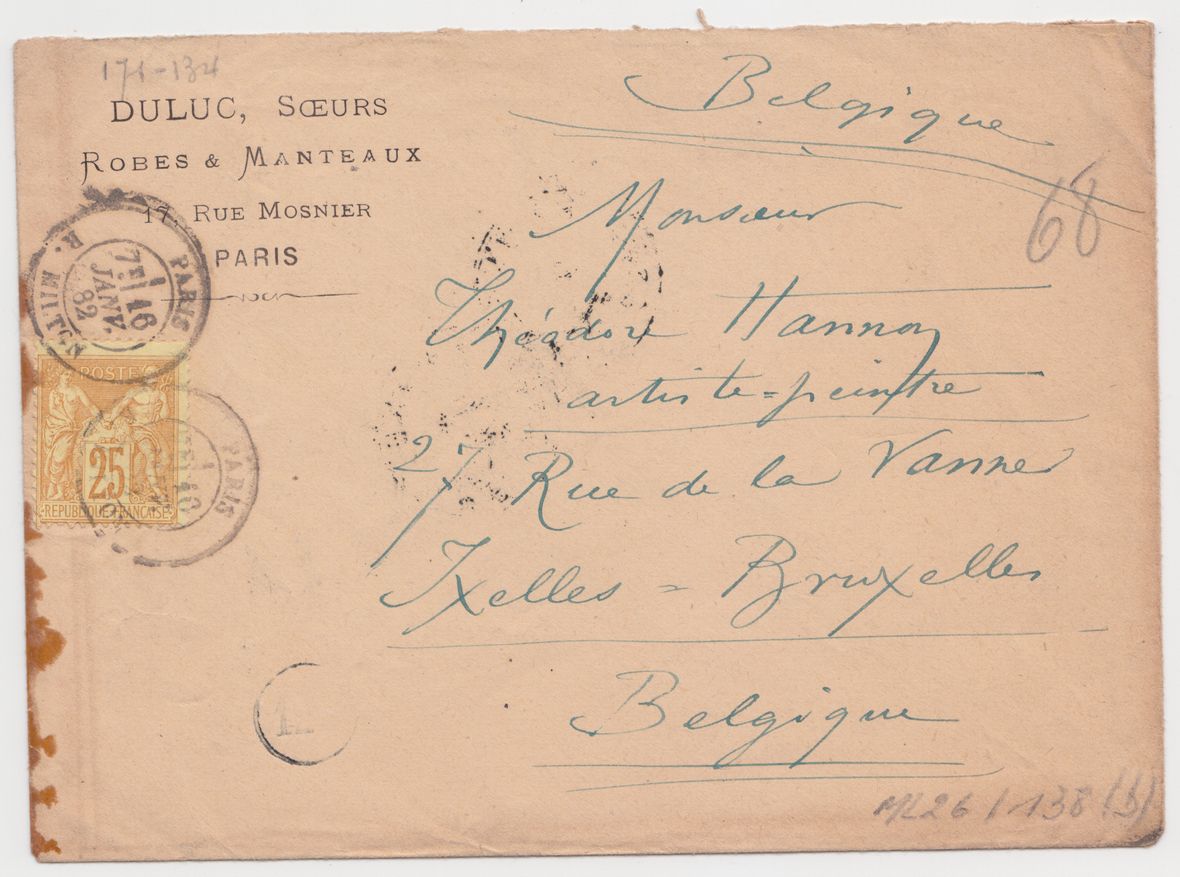 171-134
DULUC, SŒURS
ROBES & MANTEAUX
17, RUE MOSNIER
PARIS
Belgique
68
PARIS
7E 16
JANV.
82
R. MILTON
POSTE
25
REPUBLIQUE FRANCAISE
PARIS
Monsieur
Théodore Hannon
artiste=peintre
27 Rue de la Vanne
Ixelles = Bruxelles
Belgique
ML26/138 (b)